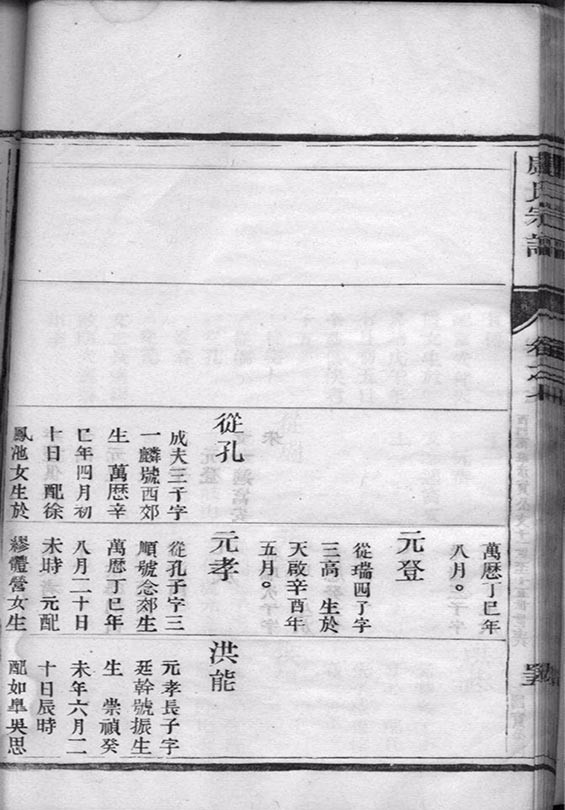 氏宗譜
從孔
成夫三子字
一麟號西郊
生 萬厯辛
巳年四月初
十日 配徐
鳳池女生於
萬厯丁巳年
八月。
元登
從瑞四子字
三高 生於
天啟辛酉年
五月。
元孝
從孔子字三
順號念郊生
萬厯丁巳年
八月二十日
未時 元配
繆體營女生
洪能
元孝長子字
廷幹號振生
生 崇禎癸
未年六月二
十日辰時
配如皋吳思